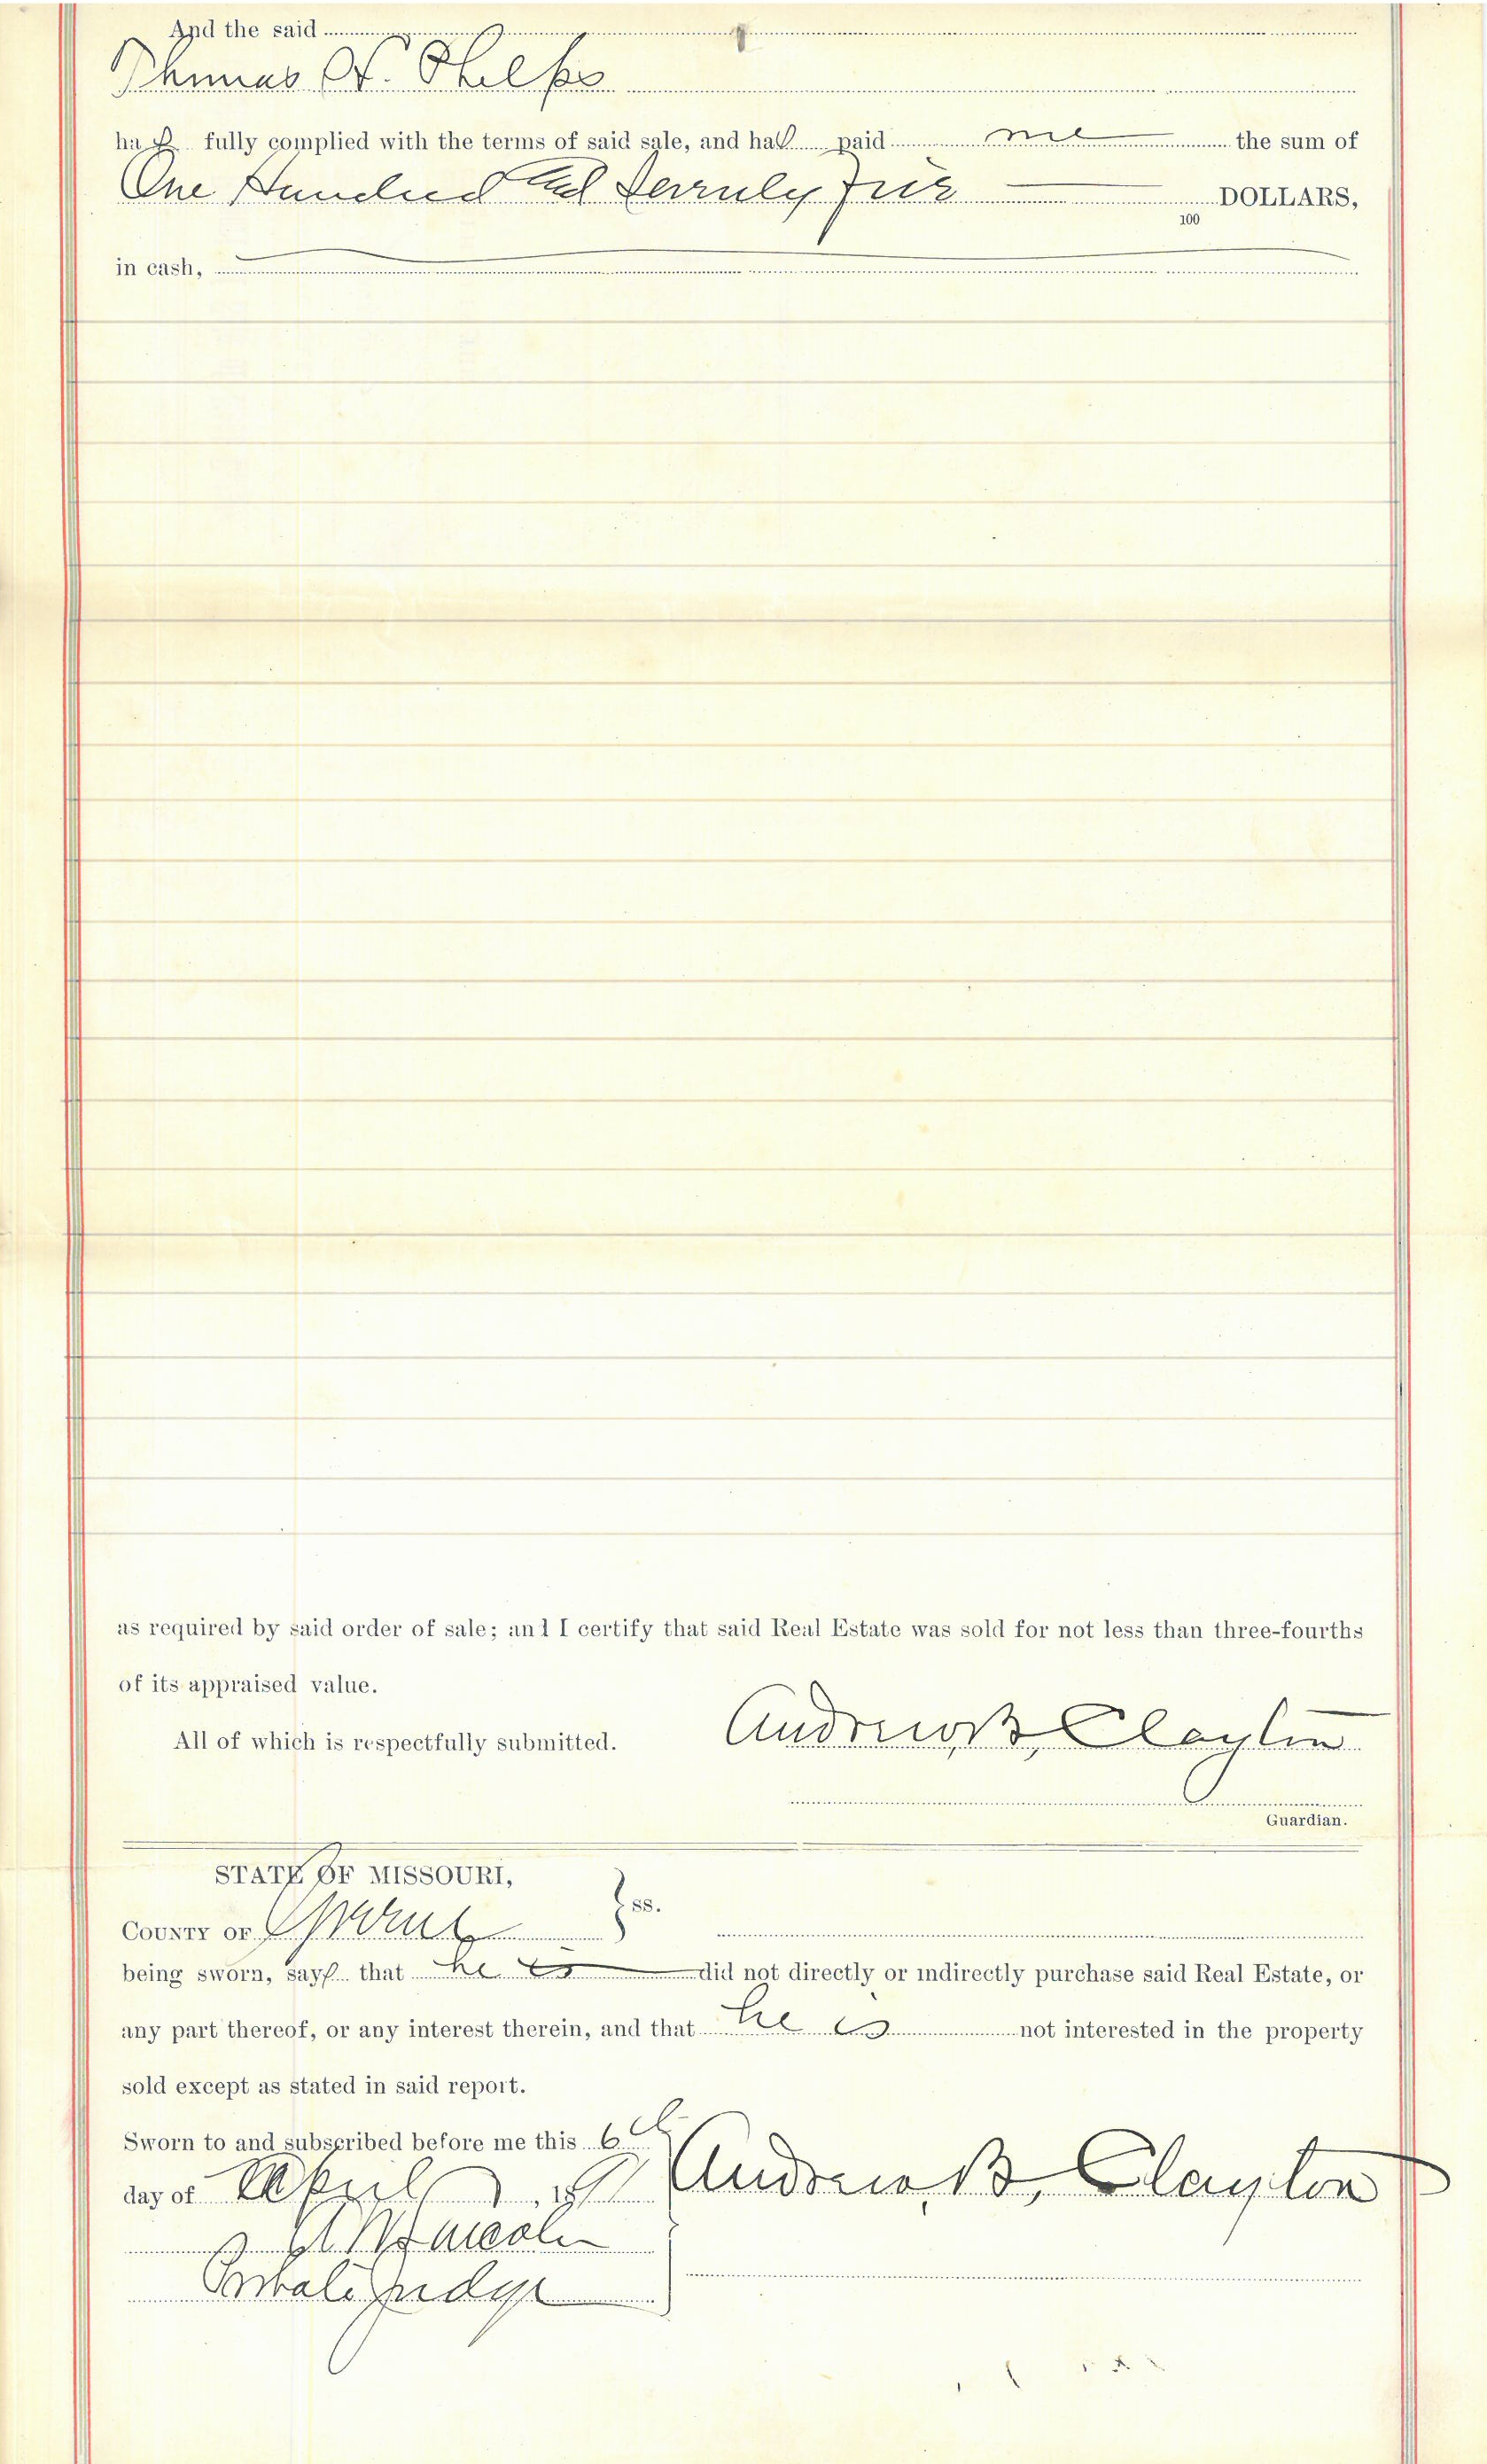 And the said
Thomas H. Phelps
has fully complied with the terms of said sale, and has paid me the sum of
One Hundred and Seventy Five DOLLARS,
100
in cash,
as required by said order of sale; and I certify that said Real Estate was sold for not less than three-fourths
of its appraised value.
All of which is respectfully submitted. Andrew B. Clayton
Guardian.
STATE OF MISSOURI,
COUNTY OF Greene ss.
being sworn, says that he is did not directly or indirectly purchase said Real Estate, or
any part thereof, or any interest therein, and that he is not interested in the property
sold except as stated in said report.
Sworn to and subscribed before me this 6th
day of April 189 Andrew B. Clayton
Probate Judge